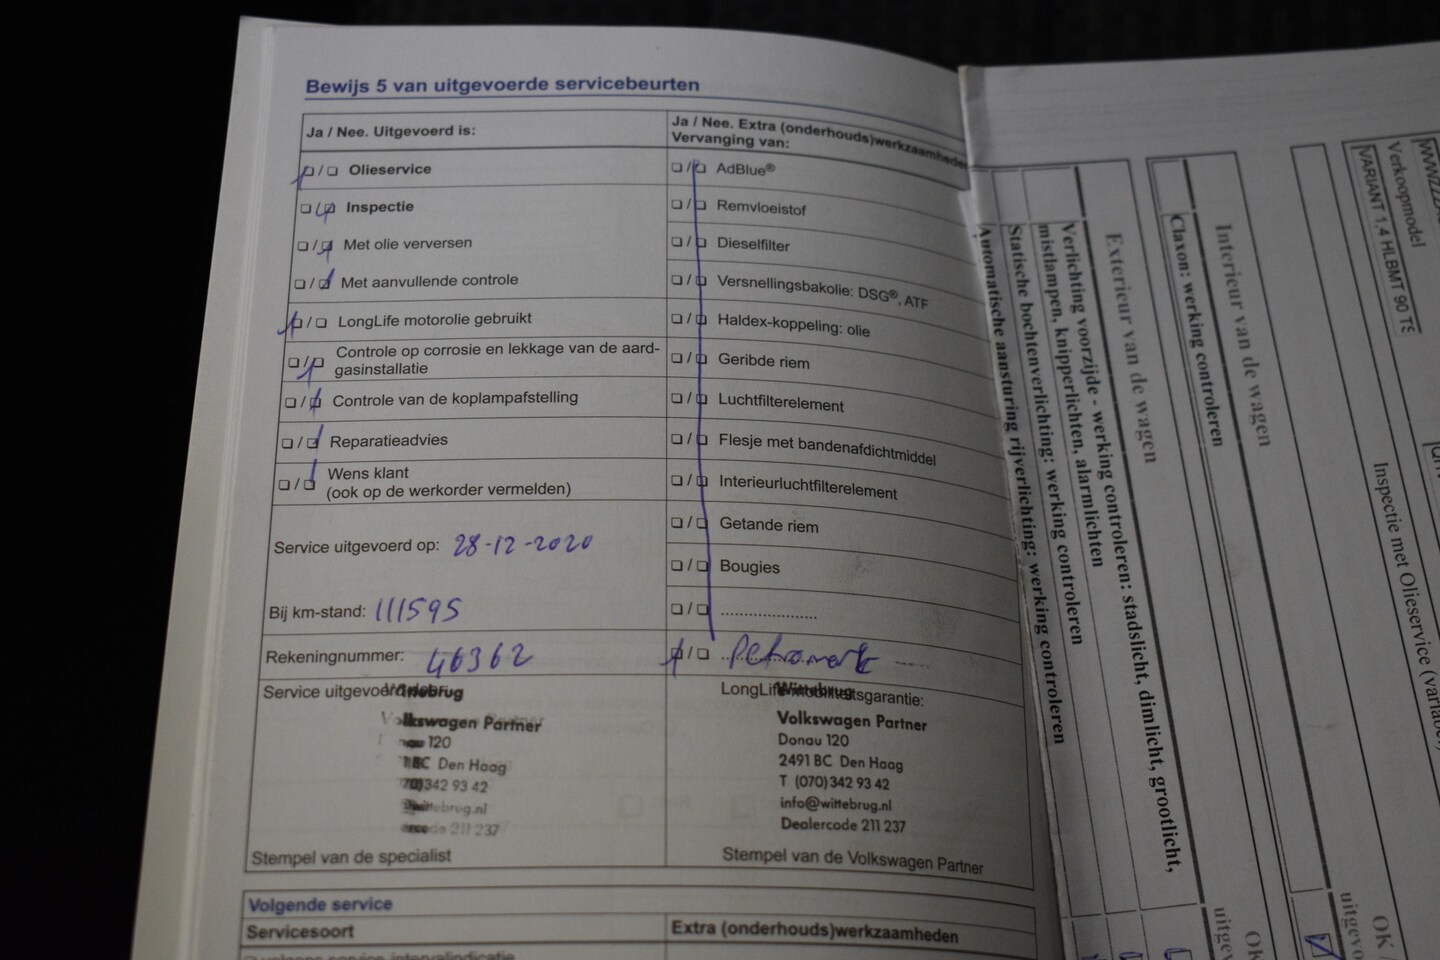 Bewijs 5 van uitgevoerde servicebeurten
Ja / Nee. Uitgevoerd is:
Olieservice
Inspectie
Met olie verversen
Met aanvullende controle
LongLife motorolie gebruikt
Controle op corrosie en lekkage van de aard-
gasinstallatie
Controle van de koplampafstelling
Reparatieadvies
Wens klant
(ook op de werkorder vermelden)
Service uitgevoerd op: 28-12-2020
Bij km-stand: 111595
Rekeningnummer: 46362
Service uitgevoerd
Wittebrug
Volkswagen Partner
120
Den Haag
342 93 42
wittebrug.nl
211 237
Stempel van de specialist
Ja / Nee. Extra (onderhouds)werkzaamheden
Vervanging van:
AdBlue®
Remvloeistof
Dieselfilter
Versnellingsbakolie: DSG®, ATF
Haldex-koppeling: olie
Geribde riem
Luchtfilterelement
Flesje met bandenafdichtmiddel
Interieurluchtfilterelement
Getande riem
Bougies
....................
Petromerk
LongLife-mobiliteitsgarantie:
Wittebrug
Volkswagen Partner
Donau 120
2491 BC Den Haag
T (070) 342 93 42
info@wittebrug.nl
Dealercode 211 237
Stempel van de Volkswagen Partner
Volgende service
Servicesoort
Extra (onderhouds)werkzaamheden
volgens service-intervalindicatie
Verkoopmodel
VARIANT 1,4 HLBMT 90 TS
Inspectie met Olieservice
Interieur van de wagen
Claxon: werking controleren
Exterieur van de wagen
Verlichting voorzijde - werking controleren: stadslicht, dimlicht, grootlicht,
mistlampen, knipperlichten, alarmlichten
Statische bochtenverlichting: werking controleren
Automatische aansturing rijverlichting: werking controleren
OK
OK